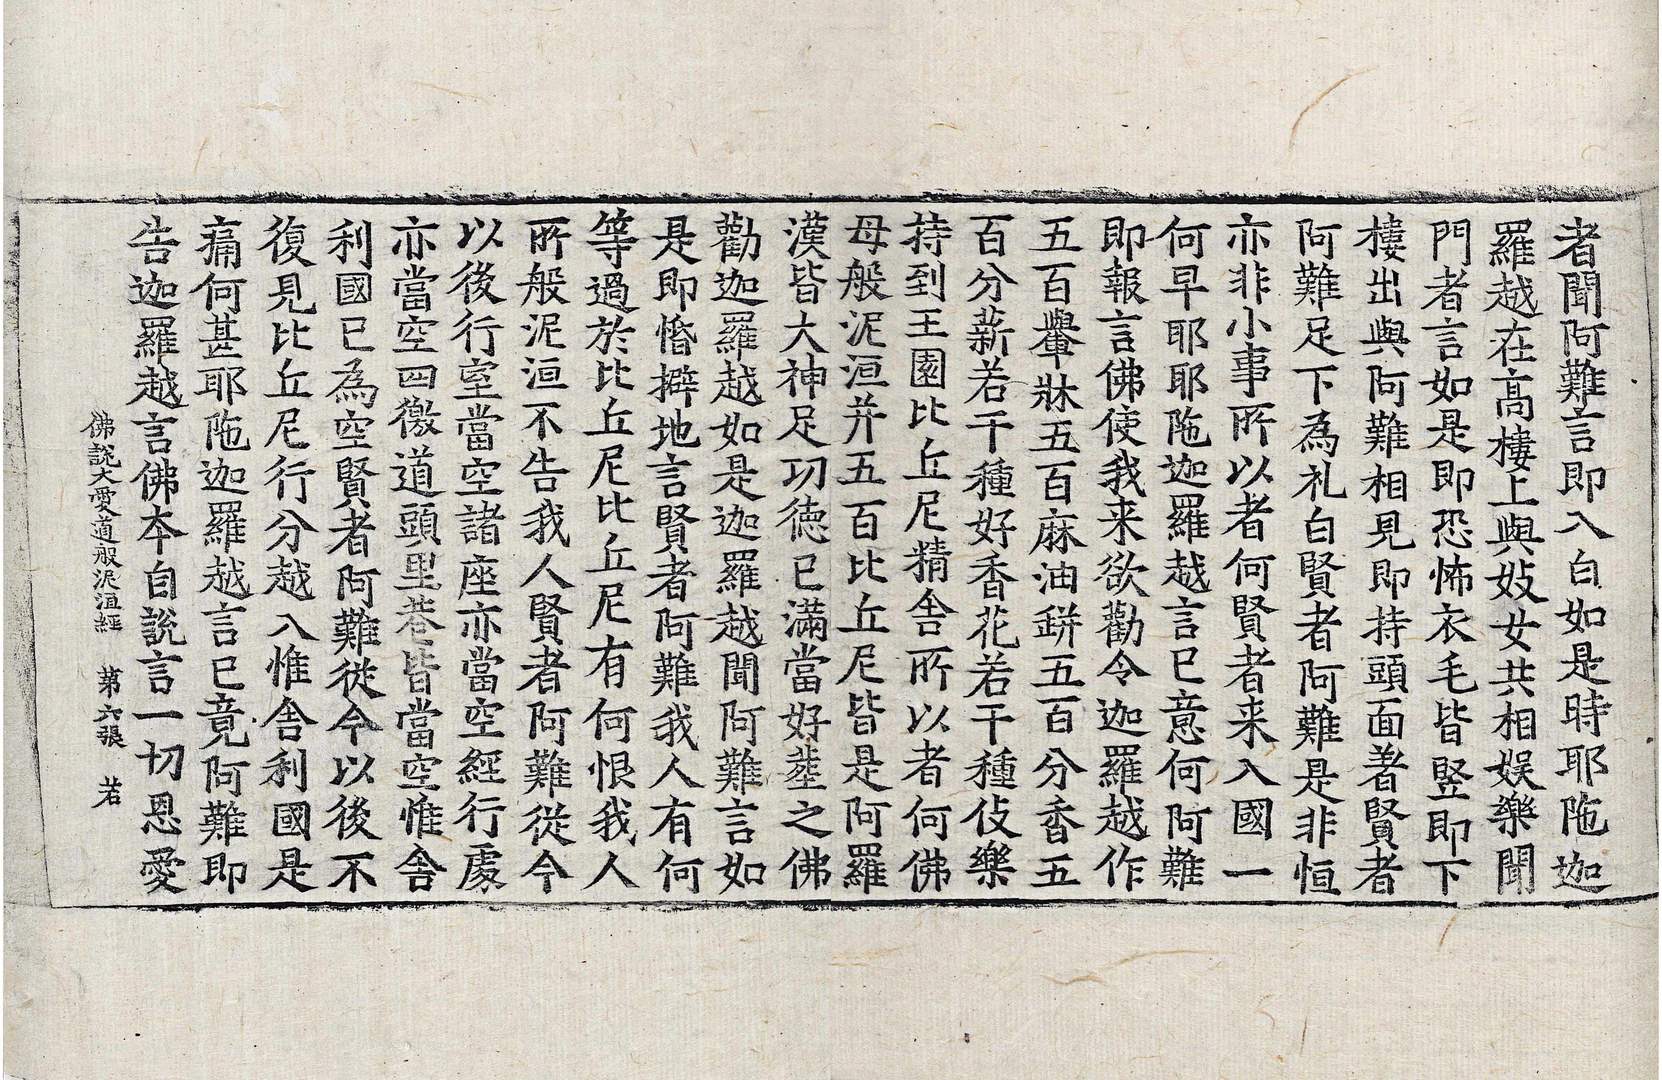 者聞阿難言即入白如是時耶陁迦
羅越在高樓上與妓女共相娱樂聞
門者言如是即恐怖衣毛皆竪即下
樓出與阿難相見即持頭面著賢者
阿難足下為礼白賢者阿難是非恒
亦非小事所以者何賢者来入國一
何早耶耶陁迦羅越言已意何阿難
即報言佛使我来欲勸令迦羅越作
五百轝牀五百麻油鉼五百分香五
百分薪若干種好香花若干種伎樂
持到王園比丘尼精舎所以者何佛
母般泥洹并五百比丘尼皆是阿羅
漢皆大神足功德已滿當好塟之佛
勸迦羅越如是迦羅越聞阿難言如
是即惛擗地言賢者阿難我人有何
等過於比丘尼比丘尼有何恨我人
所般泥洹不告我人賢者阿難従今
以後行室當空諸座亦當空經行處
亦當空四徼道頭里巷皆當空惟舎
利國已為空賢者阿難従今以後不
復見比丘尼行分越入惟舎利國是
痛何甚耶陁迦羅越言已竟阿難即
告迦羅越言佛夲自說言一切恩愛
佛說大愛道般泥洹經 第六張 若